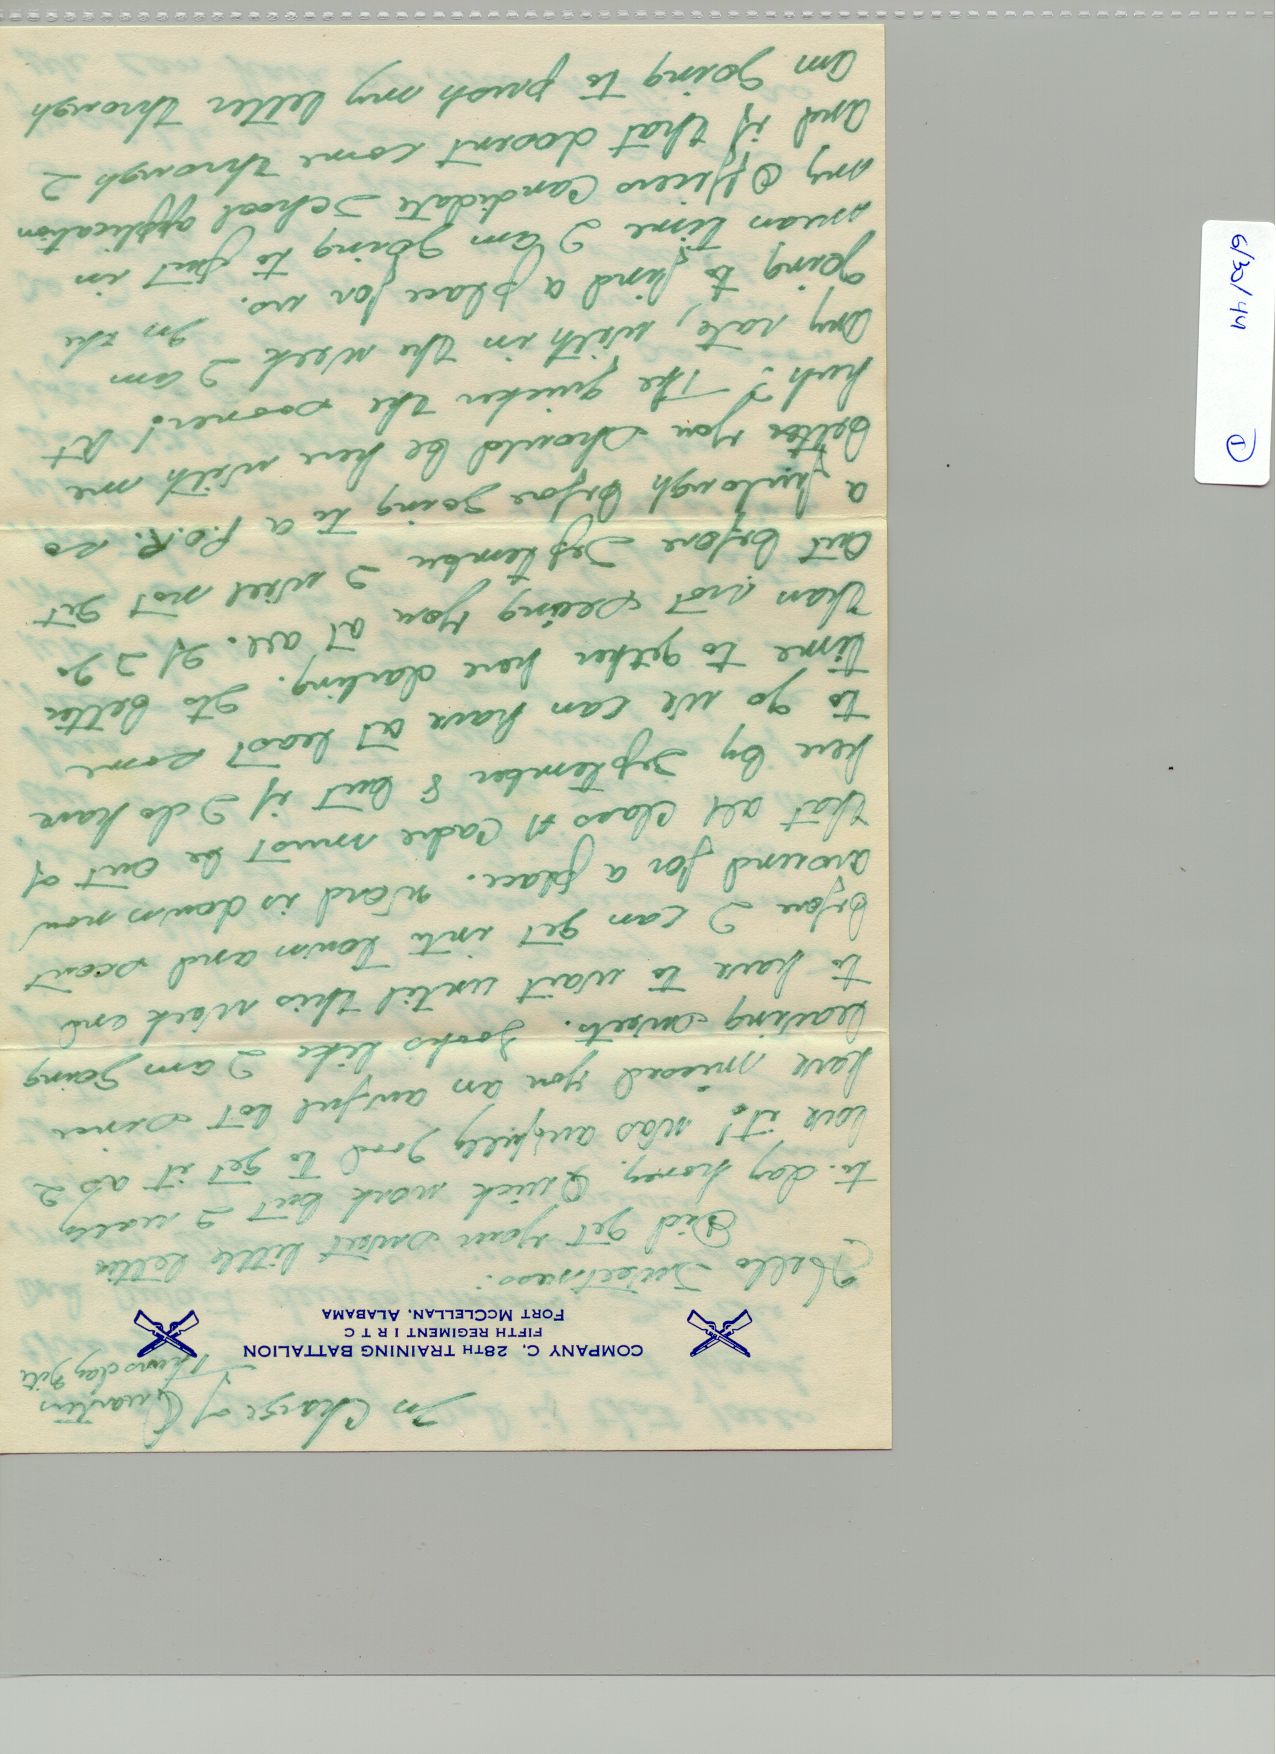 In Charge of Quarters
Thursday Nite
COMPANY C, 28TH TRAINING BATTALION
FIFTH REGIMENT I R T C
FORT MCCLELLAN, ALABAMA
Hello Sweetness:
Did get your sweet little letter
to-day honey. Quick work but I really
love it! Was awfully good to get it as I
have missed you an awful lot since
leaving sweets. Looks like I am going
to have to wait until this week end
before I can get into town and scout
around for a place. Word is down now
that all Class A Cadre must be out of
here by September 8 but if I do have
to go we can have at least some
time to gether here darling. Its better
than not seeing you at all. If I go
out before September I will not get
a furlough before going to a P.O.R. so
better you should be here with me
huh? The quicker the sooner! At
any rate, with in the week I am
going to find a place for us. In the
mean time I am going to put in
my Officers Candidate School application
and if that dosent come through I
am going to push my letter through
6/30/44
1